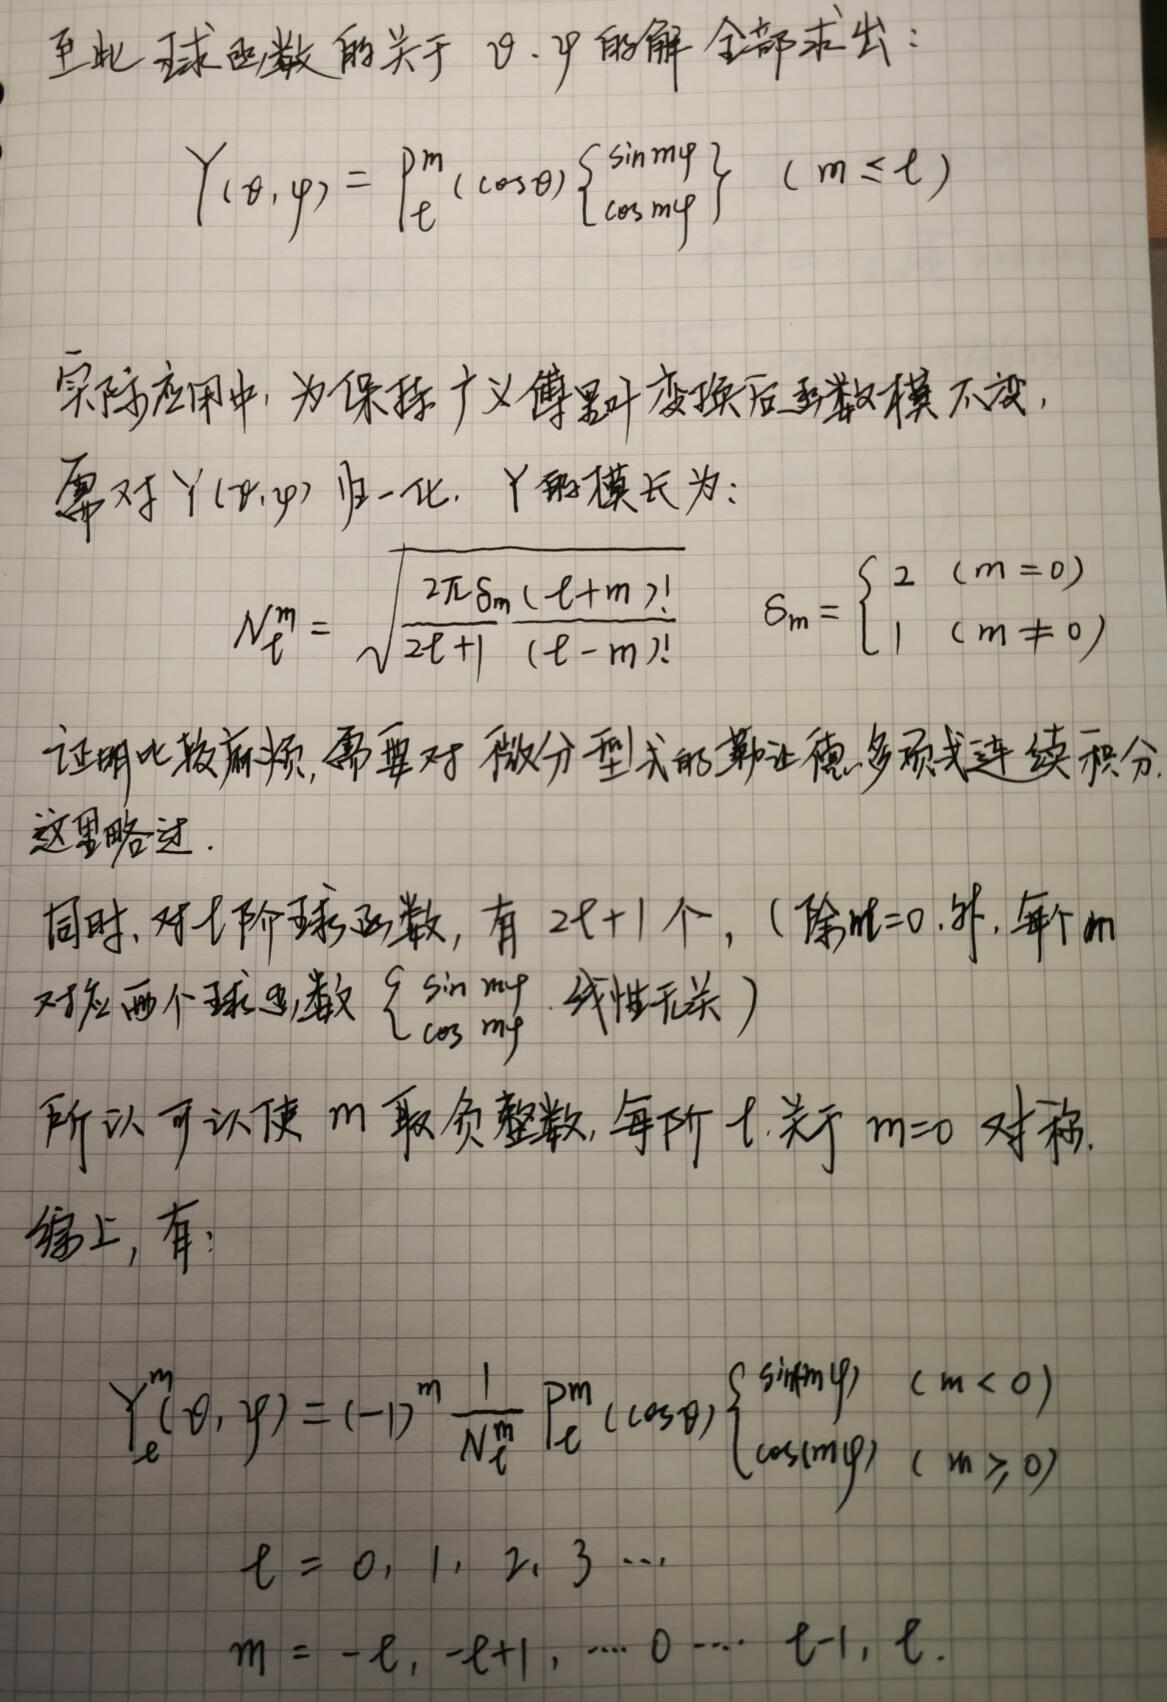 至此球函数的关于 θ.φ 的解全部求出：
Y(θ,φ) = P_l^m (cosθ) { sin mφ
cos mφ } (m ≤ l)
实际应用中, 为保持广义傅里叶变换后函数模不变,
需对 Y(θ,φ) 归一化. Y 的模长为：
N_l^m = √( 2πδ_m (l+m)! / 2l+1 (l-m)! ) δ_m = { 2 (m=0)
1 (m≠0)
证明比较麻烦, 需要对微分型式的勒让德多项式连续积分.
这里略过.
同时, 对 l 阶球函数, 有 2l+1 个, (除 m=0 外, 每个 m
对应两个球函数 { sin mφ
cos mφ 线性无关 )
所以可以使 m 取负整数, 每阶 l 关于 m=0 对称.
综上, 有：
Y_l^m (θ,φ) = (-1)^m 1/N_l^m P_l^m (cosθ) { sin(mφ) (m<0)
cos(mφ) (m≥0)
l = 0, 1, 2, 3 ...
m = -l, -l+1, .... 0 .... l-1, l.